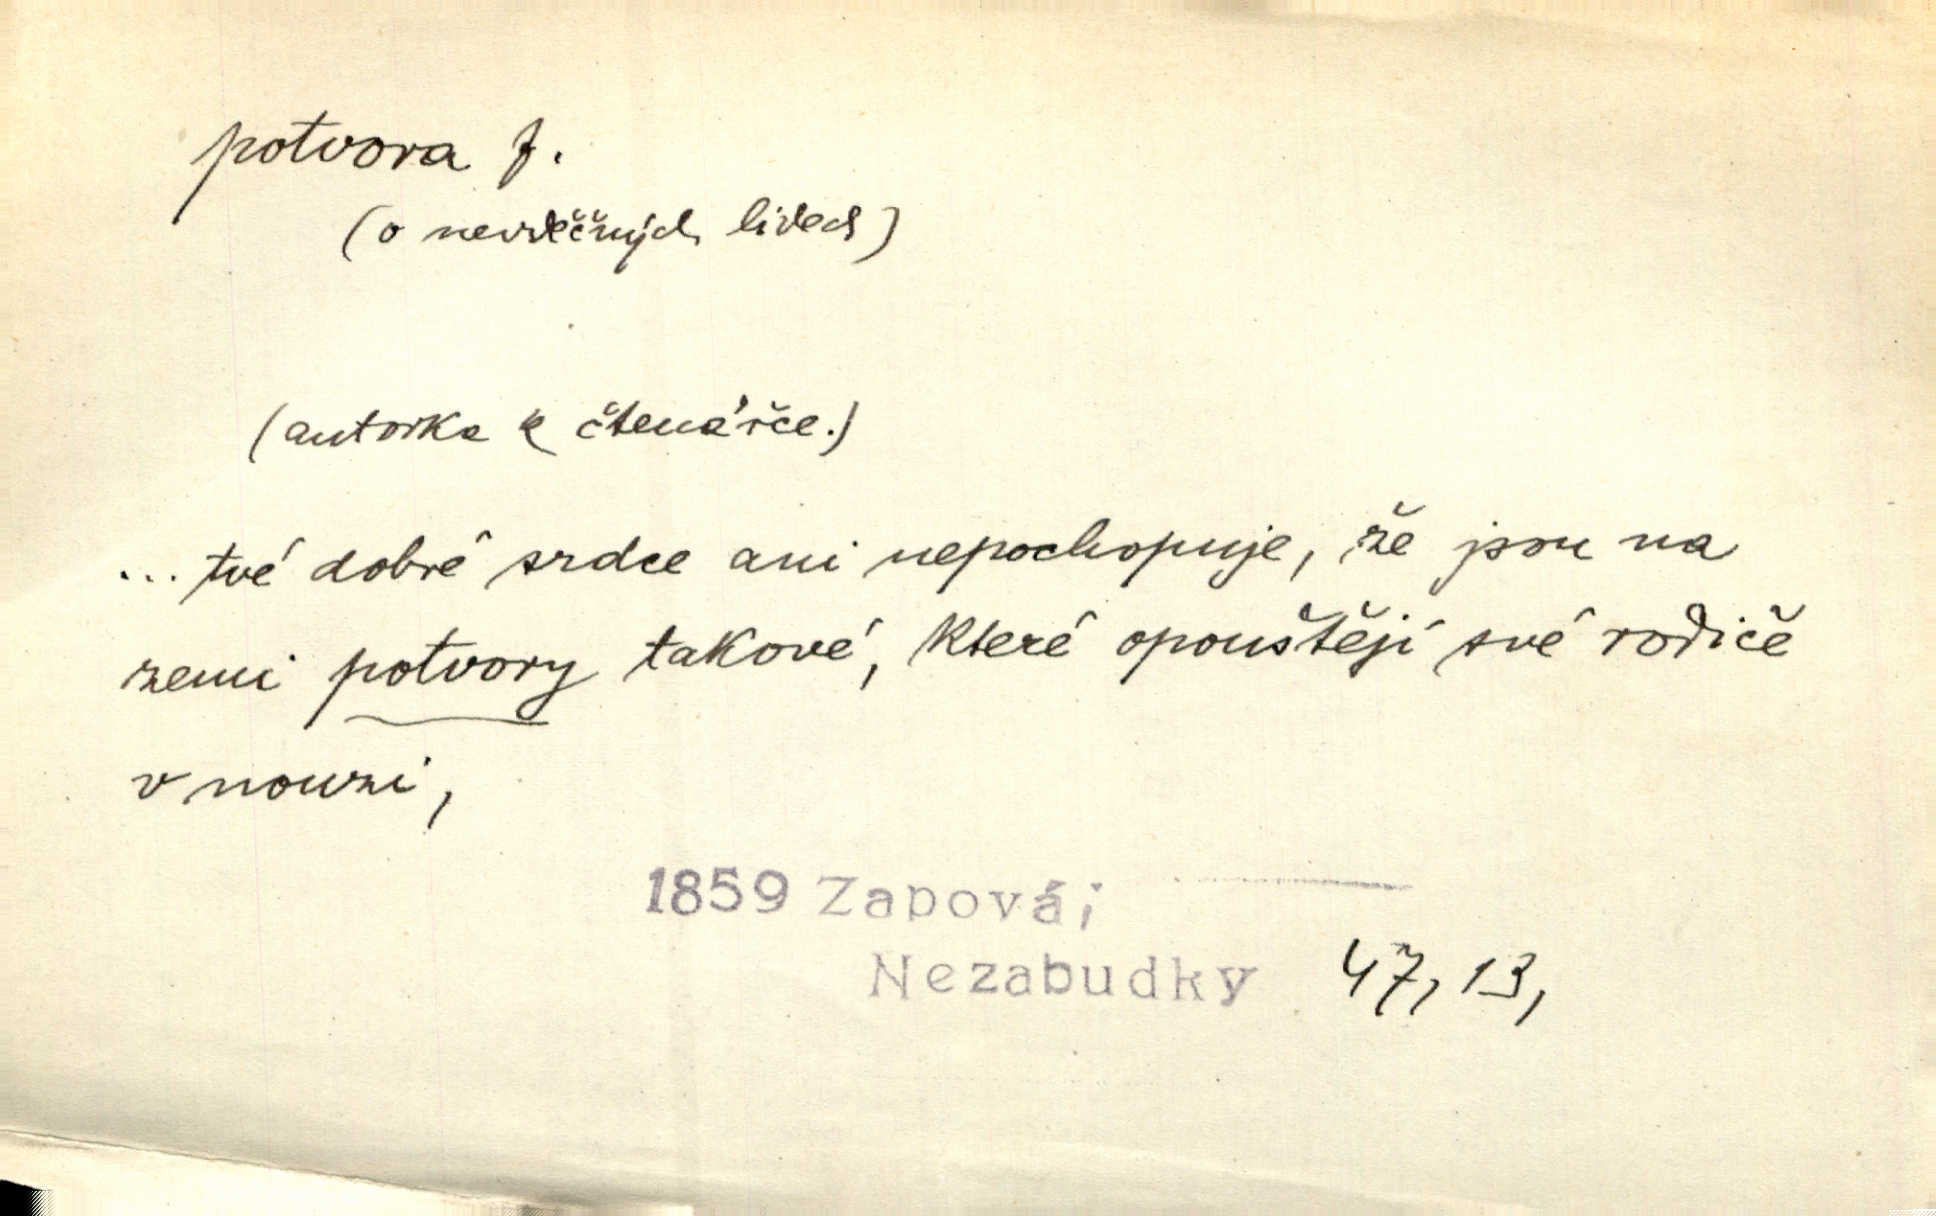 potvora f.
(o nevděčných lidech)
(autorka k čtenářce.)
... tvé dobré srdce ani nepochopuje, že jsou na
zemi potvory takové, které opouštějí své rodiče
v nouzi,
1859 Zapováj
Nezabudky 47, 13,